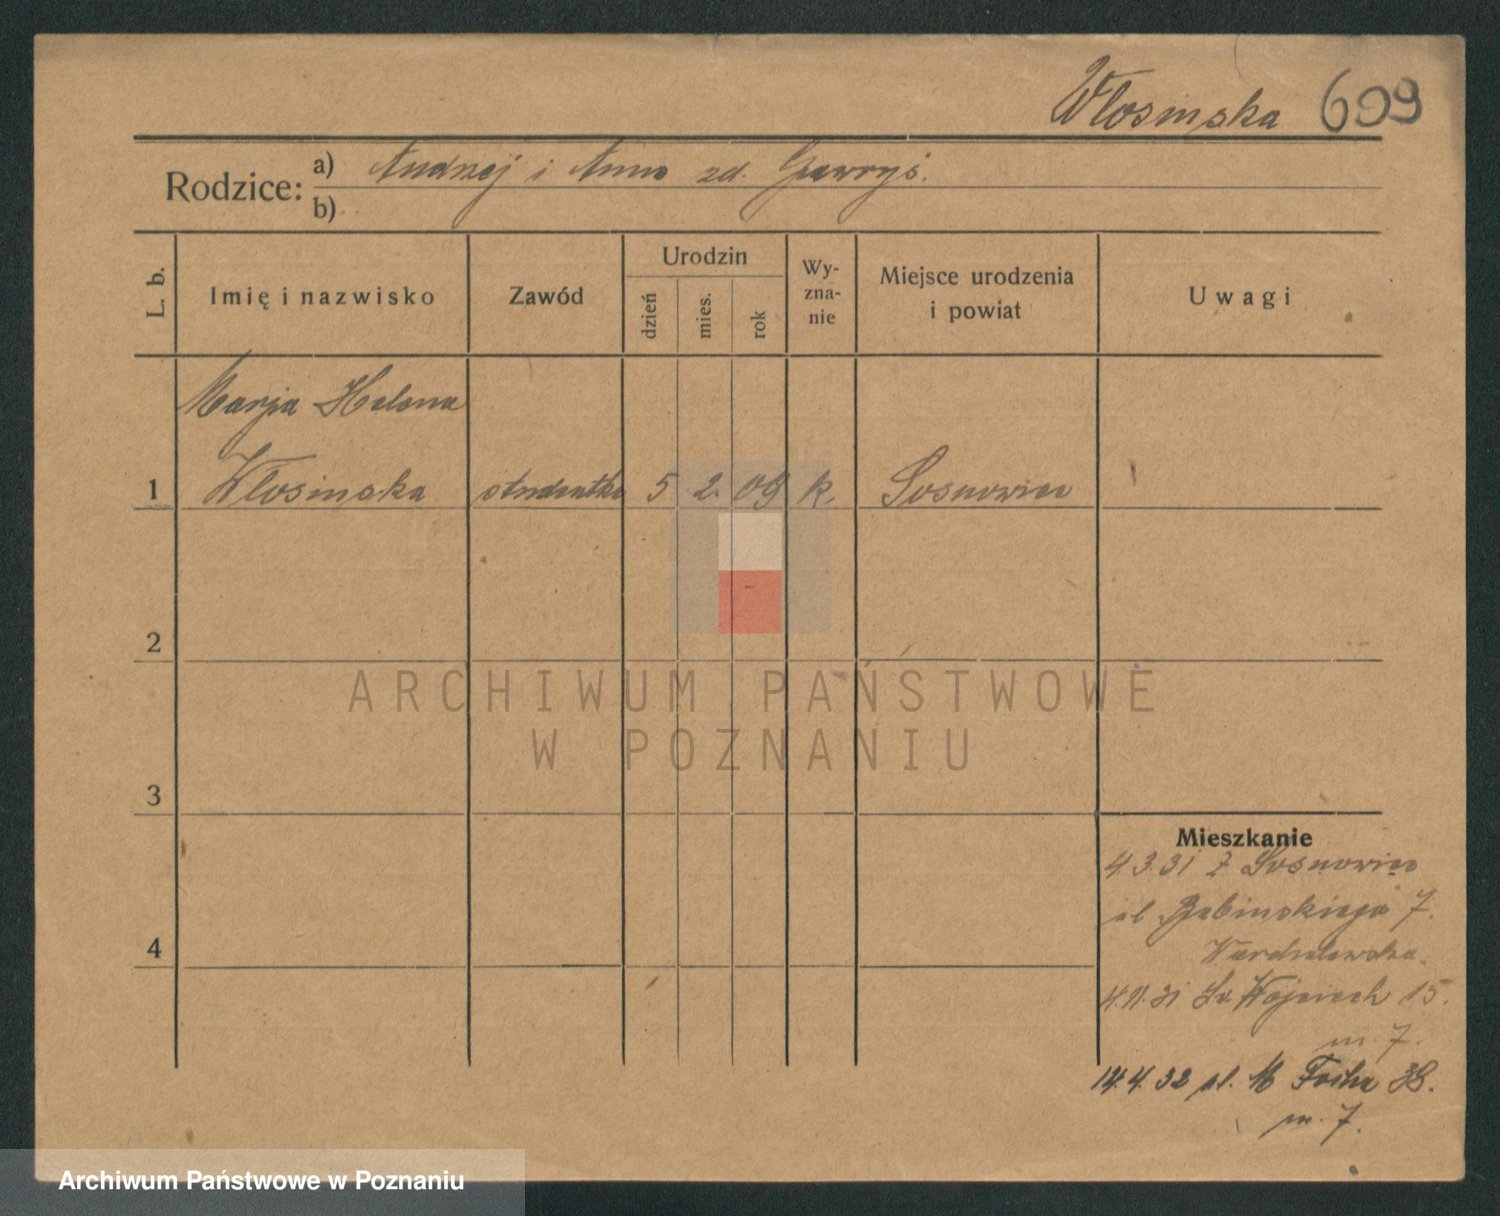 Włosinska 609
Rodzice: a) Andrzej i Anna zd. Gawryś.
b)
L. b.
Imię i nazwisko
Zawód
Urodzin
dzień
mies.
rok
Wy-
zna-
nie
Miejsce urodzenia
i powiat
Uwagi
Marja Helena
1 Włosinska studentka 5 2. 09 k. Sosnowiec
2
3
4
ARCHIWUM PAŃSTWOWE
W POZNANIU
Mieszkanie
4.3.31 z Sosnowiec
ul 7.
4.11.31 Św. Wojciech 15.
m. 7.
14.4.32 ul. M Focha 38.
m. 7.
Archiwum Państwowe w Poznaniu